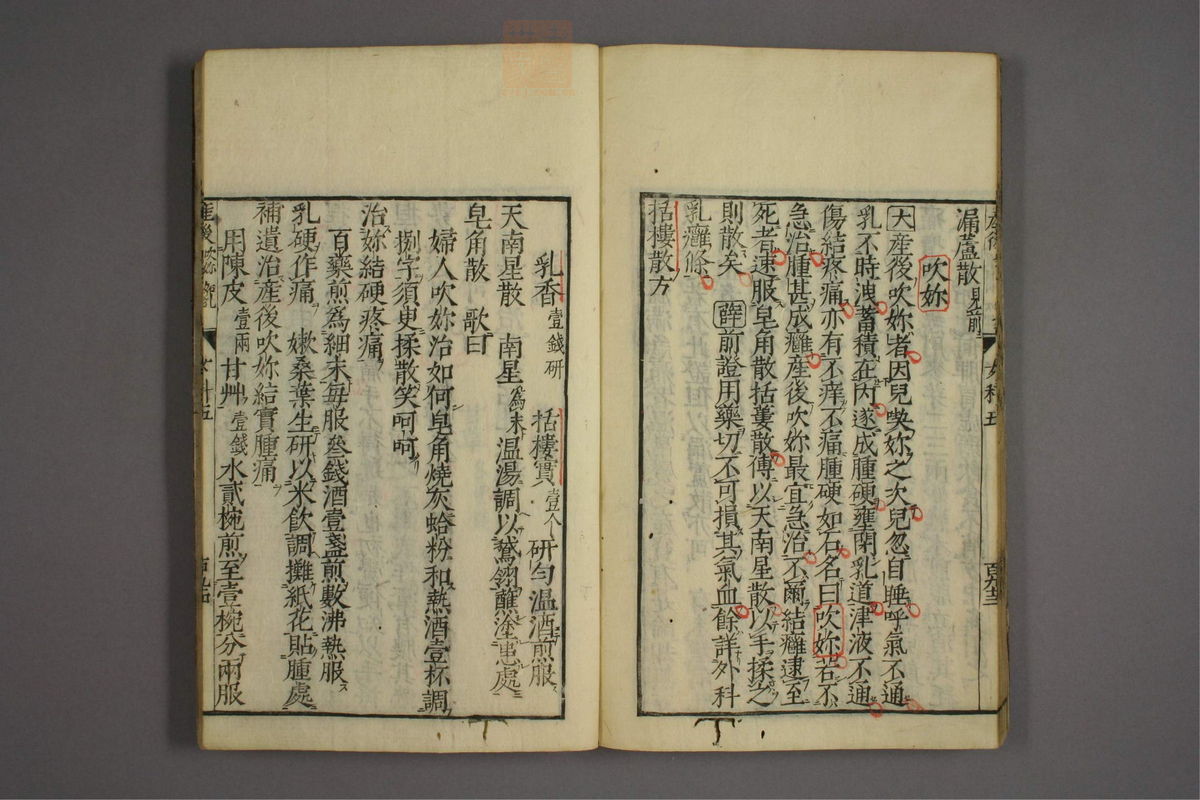 漏蘆散見前
吹妳
大產後吹妳者因兒喫妳之次兒忽自睡呼氣不通
乳不時洩蓄積在內遂成腫硬壅閉乳道津液不通
傷結疼痛亦有不痒不痛腫硬如石名曰吹妳若不
急治腫甚成癰產後吹妳最宜急治不爾結癰逮至
死者速服皂角散括蔞散傅以天南星散以手揉之
則散矣 薛前證用藥切不可損其氣血餘詳外科
乳癰條
括樓散方
女科五
乳香壹錢研 括樓實壹个 研勻溫酒煎服
天南星散 南星為末溫湯調以鵞翎蘸塗患處
皂角散 歌曰
婦人吹妳治如何皂角燒灰蛤粉和熱酒壹杯調
捌字須臾揉散笑呵呵
治妳結硬疼痛
百藥煎為細末每服叄錢酒壹盞煎數沸熱服
乳硬作痛 嫩桑葉生研以米飲調攤紙花貼腫處
補遺治產後吹妳結實腫痛
用陳皮壹兩甘艸壹錢水貳椀煎至壹椀分兩服
產後吹妳